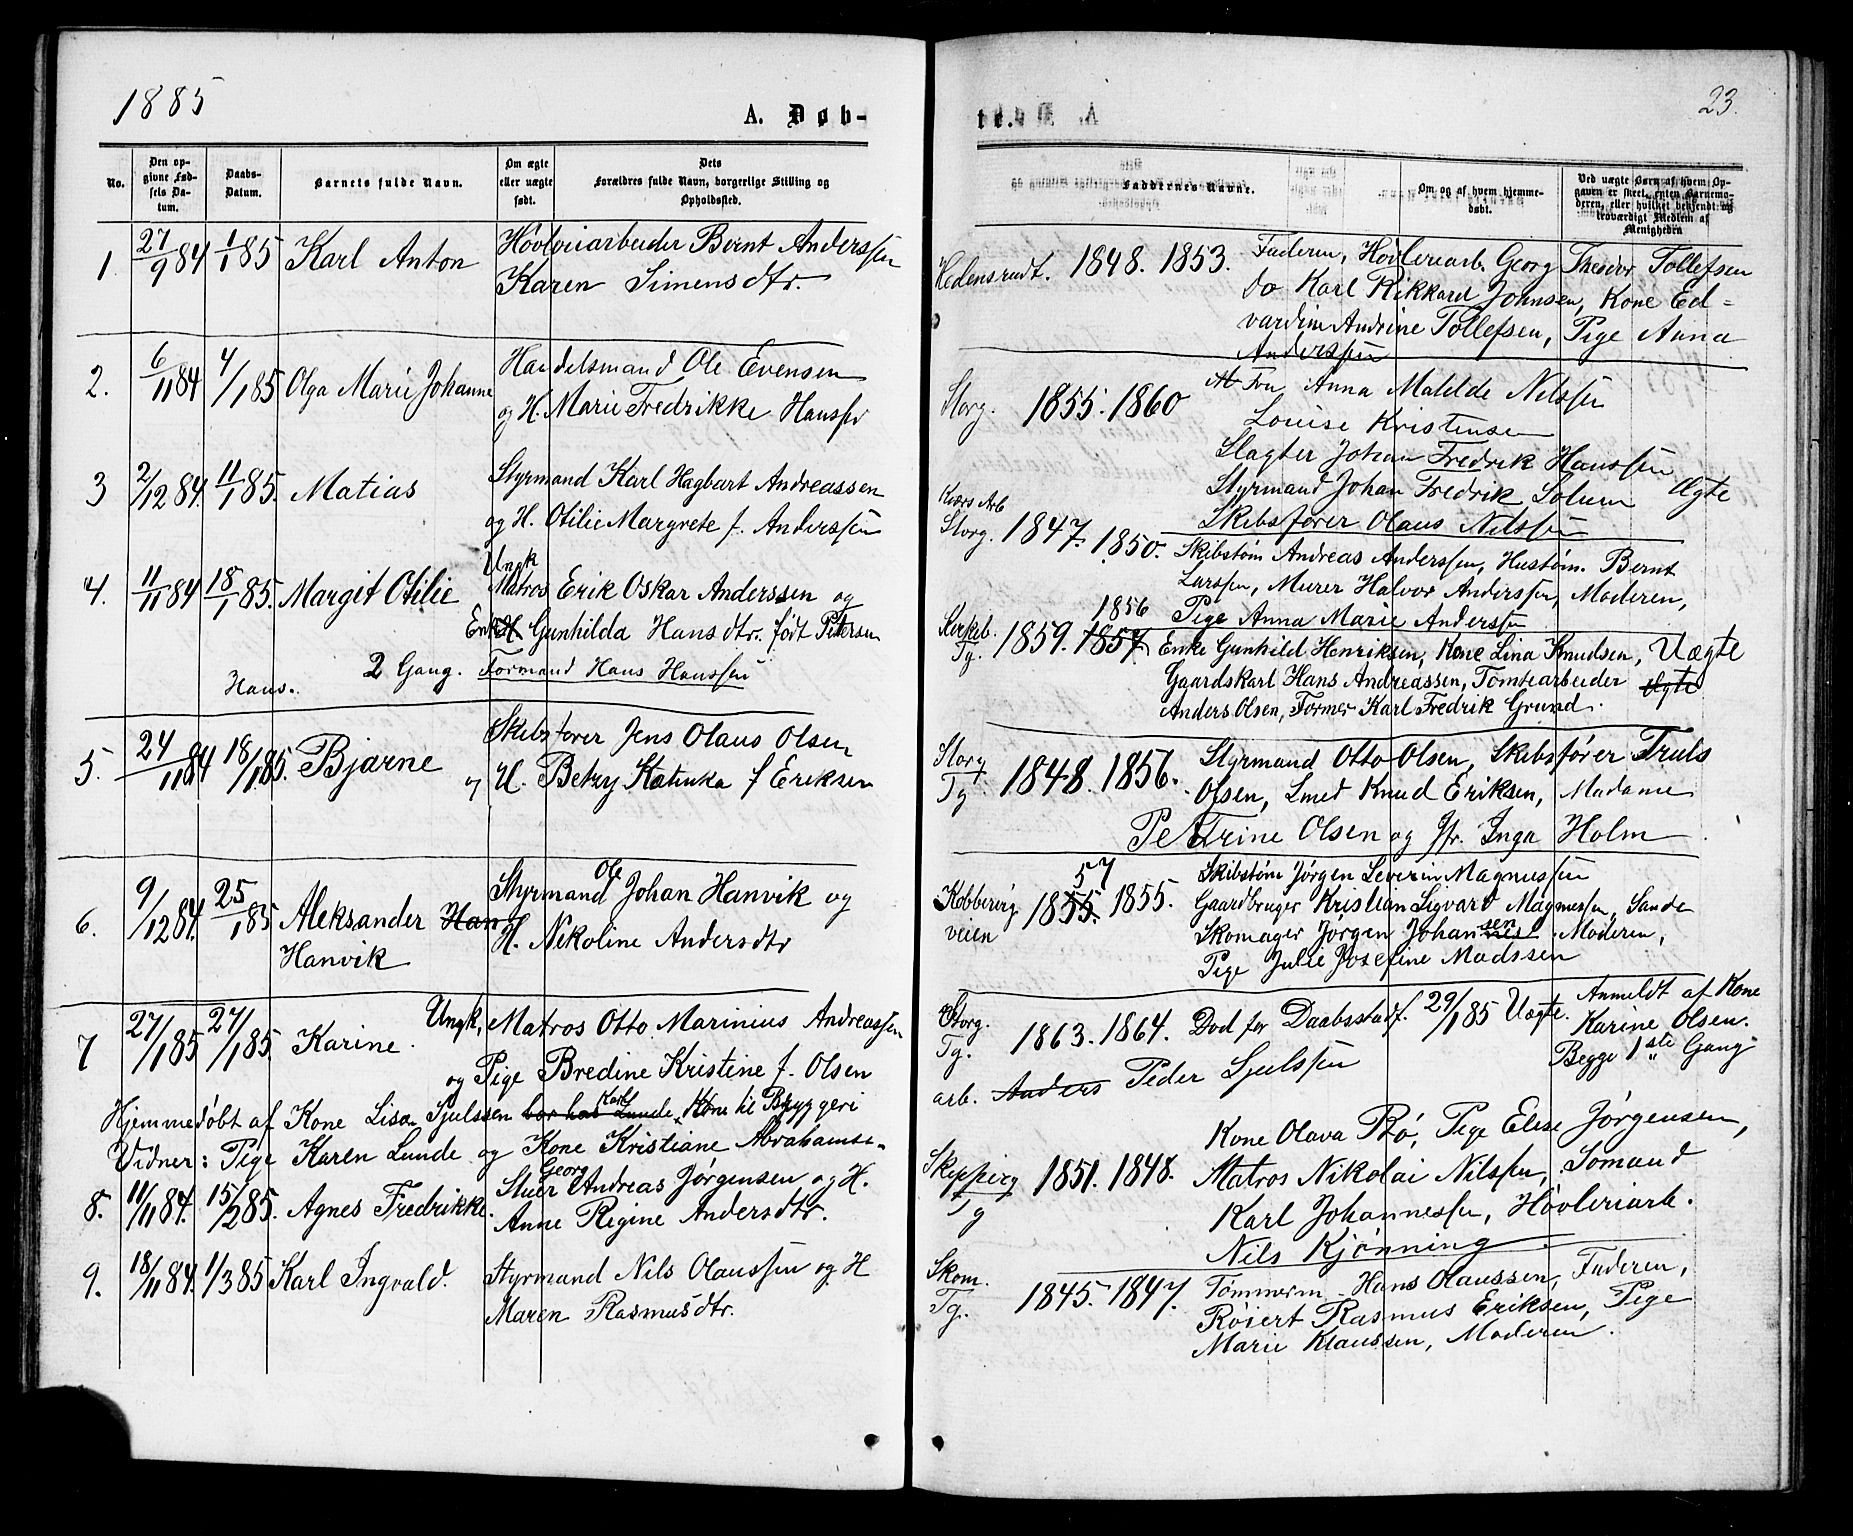 1885
A. Døb-
No.
Den op-
givne Fød-
sels Da-
tum.
Daabs-
Datum.
Barnets fulde Navn.
Om ægte
eller uægte
født.
Dets
Forældres fulde Navn, borgerlige Stilling og
Opholdsted.
1. 27/9 84 1/1 85 Karl Anton
Høvleriarbeider Bernt Anderssen
Karen Simensdtr.
2. 6/11 84 4/1 85 Olga Marie Johanne
Handelsmand Ole Evensen
og H. Marie Fredrikke Hanssen
3 2/12 84. 11/1 85. Matias
Styrmand Karl Hagbart Andreassen
og H. Otilie Margrete f. Anderssen
4. 11/11 84 18/1 85. Margit Otilie
Ungk
Matros Erik Oskar Anderssen og
Enke Gunhilda Hansdtr. født Petersen
2 Gang. Formand Hans Hanssen
Hans.
5. 24/11 84 18/1 85. Bjarne
Skibsfører Jens Olaus Olsen
og H. Betzy Katinka f Eriksen
6. 9/12 84. 25/1 85 Aleksander Han
Hanvik
Styrmand Ole Johan Hanvik og
H. Nikoline Andersdtr
7 27/1 85 27/1 85. Karine.
Ungk. Matros Otto Marinius Andreassen
og Pige Bredine Kristine f. Olsen
Hjemmedøbt af Kone Lisa Sjulssen Karl Lunde, Kone til Bryggeri
Vidner: Pige Karen Lunde og Kone Kristiane Abrahamse-
8. 11/11 84. 15/2 85. Agnes Fredrikke.
Stuer Georg Andreas Jørgensen og H.
Anne Regine Andersdtr.
9. 18/11 84. 1/3 85 Karl Ingvald.
Styrmand Nils Olaussen og H
Maren Rasmusdtr.
23.
te.
Faddernes Navne.
Om og af hvem hjemme-
døbt.
Ved uægte Børn af hvem Op-
gaven er skeet, enten Barnemo-
deren, eller hvilket bekjendt og
troværdigt Medlem af
Menigheden
Hedensrudt. 1848. 1853.
Faderen, Høvleriarb. Georg Theodor Tollefsen
do Karl Rikkard Johnsen, Kone Ed-
vardine Andrine Tollefsen, Pige Anna
Anderssen
Storg. 1855. 1860
Fru Anna Matilde Nilssen
Louise Kristensen
Slagter Johan Fredrik Hanssen
Styrmand Johan Fredrik Solum Ægte
Skibsfører Olaus Nilssen
Storg. 1847. 1850.
Skibstøm Andreas Anderssen, Hustøm. Bernt
Larssen, Murer Halvor Anderssen, Moderen,
Pige Anna Marie Anderssen
Kirkeb.
Tg. 1859. 1857 1856
Enke Gunhild Henriksen, Kone Lina Knudsen, Uægte
Gaardskarl Hans Andreassen, Tomtearbeider Ægte
Anders Olsen, Former Karl Fredrik Grund.
Storg
Tg 1848. 1856.
Styrmand Otto Olsen, Skibsfører Truls
Olsen, Smed Knud Eriksen, Madame
Petrine Olsen og Jfr. Inga Holm
Kobberirg
veien 1855. 57 1855.
Skibstøm Jørgen Severin Magnussen
Gaardbruger Kristian Sigvard Magnussen, Sande
Skomager Jørgen Johansen Moderen,
Pige Julie Josefine Madssen
Storg.
Tg. 1863. 1864. Død før Daabsstadf. 29/1 85 Uægte.
Anmeldt af Kone
Karine Olsen.
Begge 1ste Gang
arb. Anders Peder Sjulssen
Skippirg
Tg 1851. 1848.
Kone Olava Bø, Pige Elise Jørgensen,
Matros Nikolai Nilssen, Sømand
Karl Johannessen, Høvleriarb.
Nils Kjønning
Skom.
Tg. 1845. 1847.
Tømmerm. Hans Olaussen, Faderen,
Røiert Rasmus Eriksen, Pige
Marie Klaussen, Moderen.